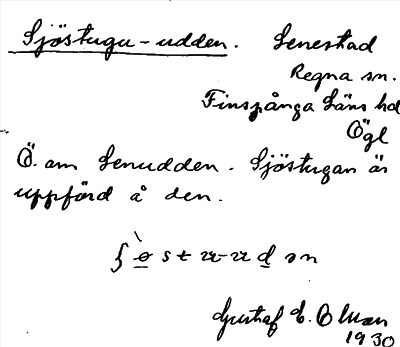 Sjöstugu-udden. Senestad
Regna sn.
Finspånga läns hd
Ögl
Ö. om Lenudden. Sjöstugan är
uppförd å den.
Gustaf E. Olsson
1930